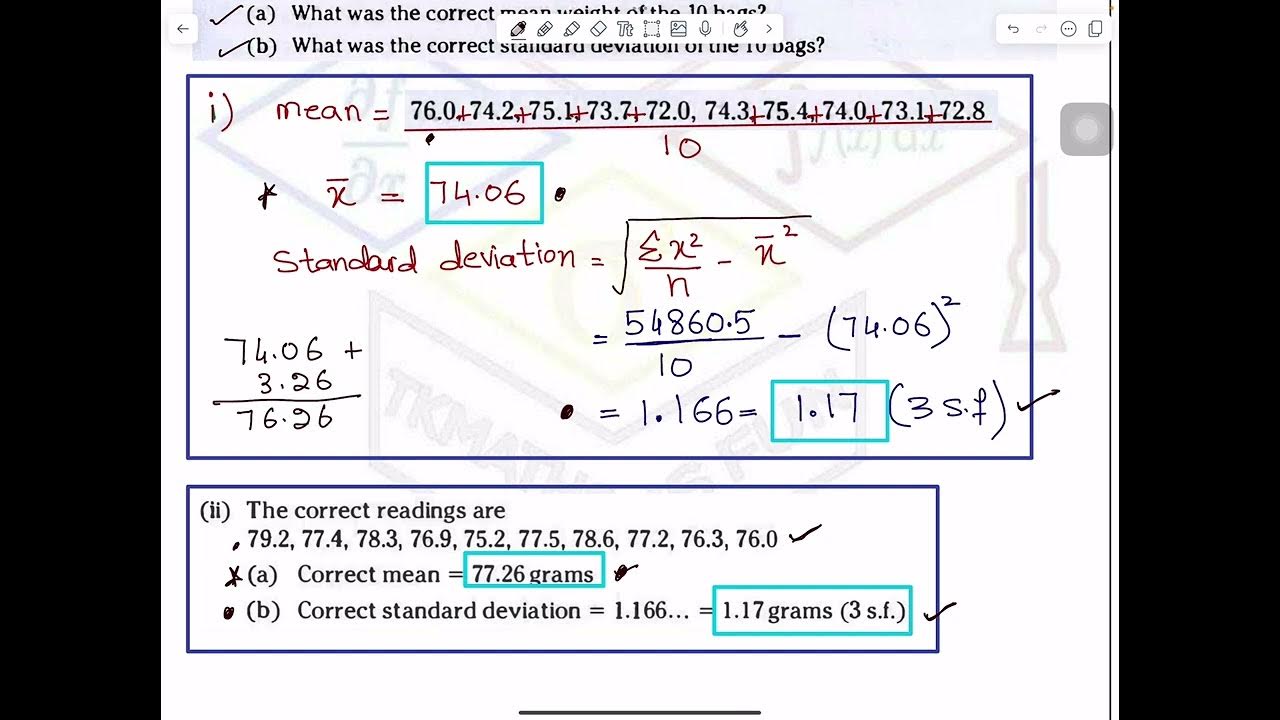 (a) What was the correct mean weight of the 10 bags?
(b) What was the correct standard deviation of the 10 bags?
i) mean = 76.0+74.2+75.1+73.7+72.0, 74.3+75.4+74.0+73.1+72.8
10
x̄ = 74.06
Standard deviation = √Σx²/n - x̄²
= 54860.5/10 - (74.06)²
74.06 +
3.26
76.26
= 1.166 = 1.17 (3 s.f)
(ii) The correct readings are
79.2, 77.4, 78.3, 76.9, 75.2, 77.5, 78.6, 77.2, 76.3, 76.0
(a) Correct mean = 77.26 grams
(b) Correct standard deviation = 1.166... = 1.17 grams (3 s.f.)